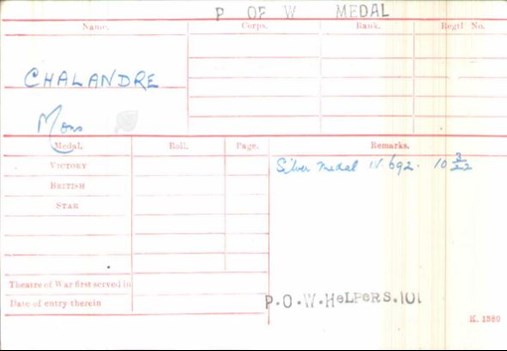 P OF W MEDAL
Name. Corps. Rank. Regtl No.
CHALANDRE
Mons
Medal. Roll. Page. Remarks.
VICTORY
BRITISH
STAR
Silver medal IV 692. 10
Theatre of War first served in
Date of entry therein
P.O.W.HeLPeRS.101
K. 1380